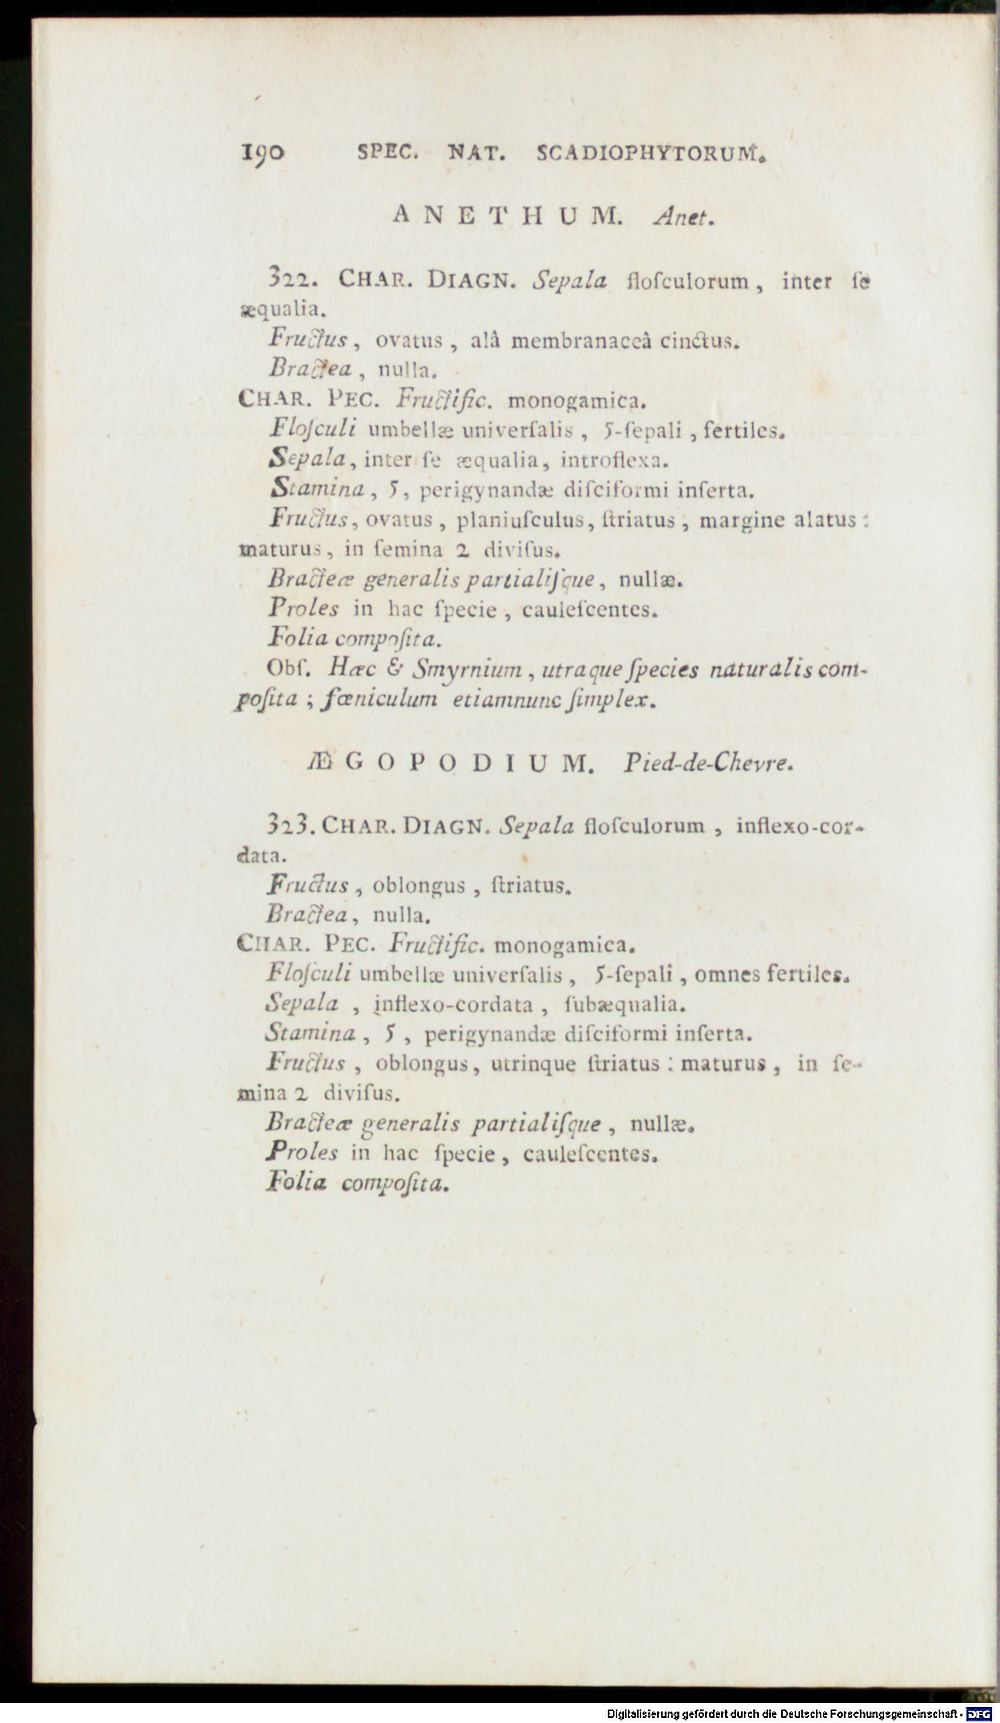 190 SPEC. NAT. SCADIOPHYTORUM.
ANETHUM. Anet.
322. CHAR. DIAGN. Sepala floſculorum, inter ſe
æqualia.
Fructus, ovatus, alâ membranaceâ cinctus.
Bractea, nulla.
CHAR. PEC. Fructific. monogamica.
Floſculi umbellæ univerſalis, 5-ſepali, fertiles.
Sepala, inter ſe æqualia, introflexa.
Stamina, 5, perigynandæ diſciformi inſerta.
Fructus, ovatus, planiuſculus, ſtriatus, margine alatus:
maturus, in ſemina 2 diviſus.
Bracteæ generalis partialiſque, nullæ.
Proles in hac ſpecie, cauleſcentes.
Folia compoſita.
Obſ. Hæc & Smyrnium, utraque ſpecies naturalis com-
poſita; fœniculum etiamnunc ſimplex.
ÆGOPODIUM. Pied-de-Chevre.
323. CHAR. DIAGN. Sepala floſculorum, inflexo-cor-
data.
Fructus, oblongus, ſtriatus.
Bractea, nulla.
CHAR. PEC. Fructific. monogamica.
Floſculi umbellæ univerſalis, 5-ſepali, omnes fertiles.
Sepala, inflexo-cordata, ſubæqualia.
Stamina, 5, perigynandæ diſciformi inſerta.
Fructus, oblongus, utrinque ſtriatus: maturus, in ſe-
mina 2 diviſus.
Bracteæ generalis partialiſque, nullæ.
Proles in hac ſpecie, cauleſcentes.
Folia compoſita.
Digitalisierung gefördert durch die Deutsche Forschungsgemeinschaft - DFG